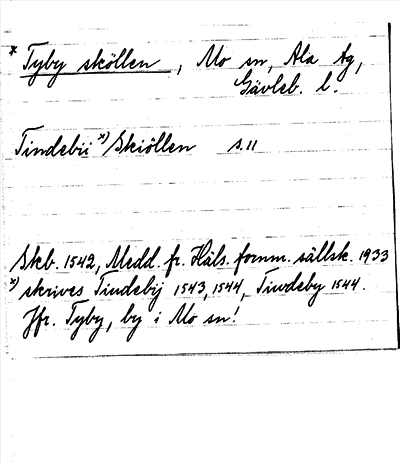 * Tyby sköllen, Mo sn, Ala tg,
Gävleb. l.
Tindebÿ *) Skiöllen s. 11
Skb. 1542, Medd. fr. Häls. fornm. sällsk. 1933
*) skrives Tindebÿ 1543, 1544, Tindeby 1544.
Jfr. Tyby, by i Mo sn!